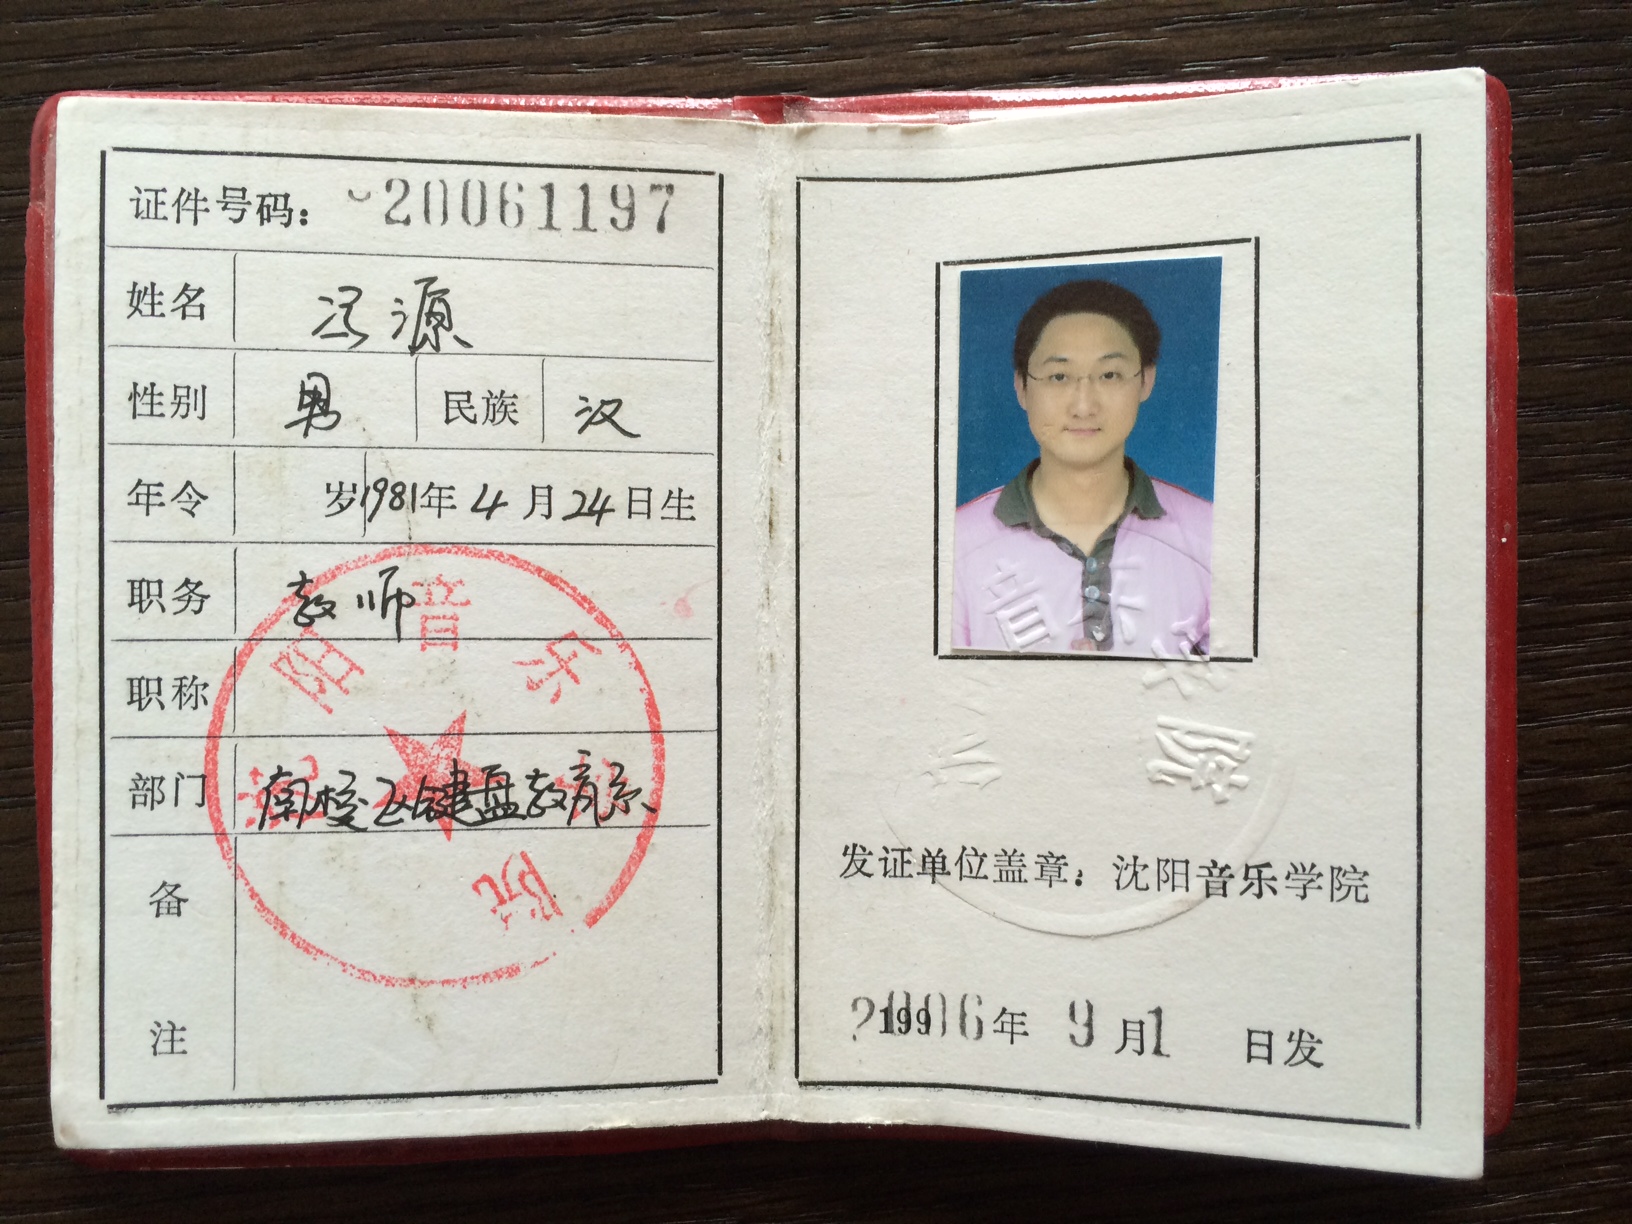 证件号码：20061197
姓名 冯源
性别 男 民族 汉
年令 岁 1981年4月24日生
职务 教师
职称
部门 南校区键盘教育系
备注
沈阳音乐学院
音乐学院
发证单位盖章：沈阳音乐学院
2006年9月1日发